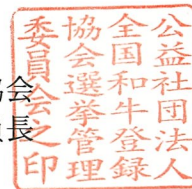 公益社団法人
全国和牛登録
協会選挙管理
委員会之印
会
長